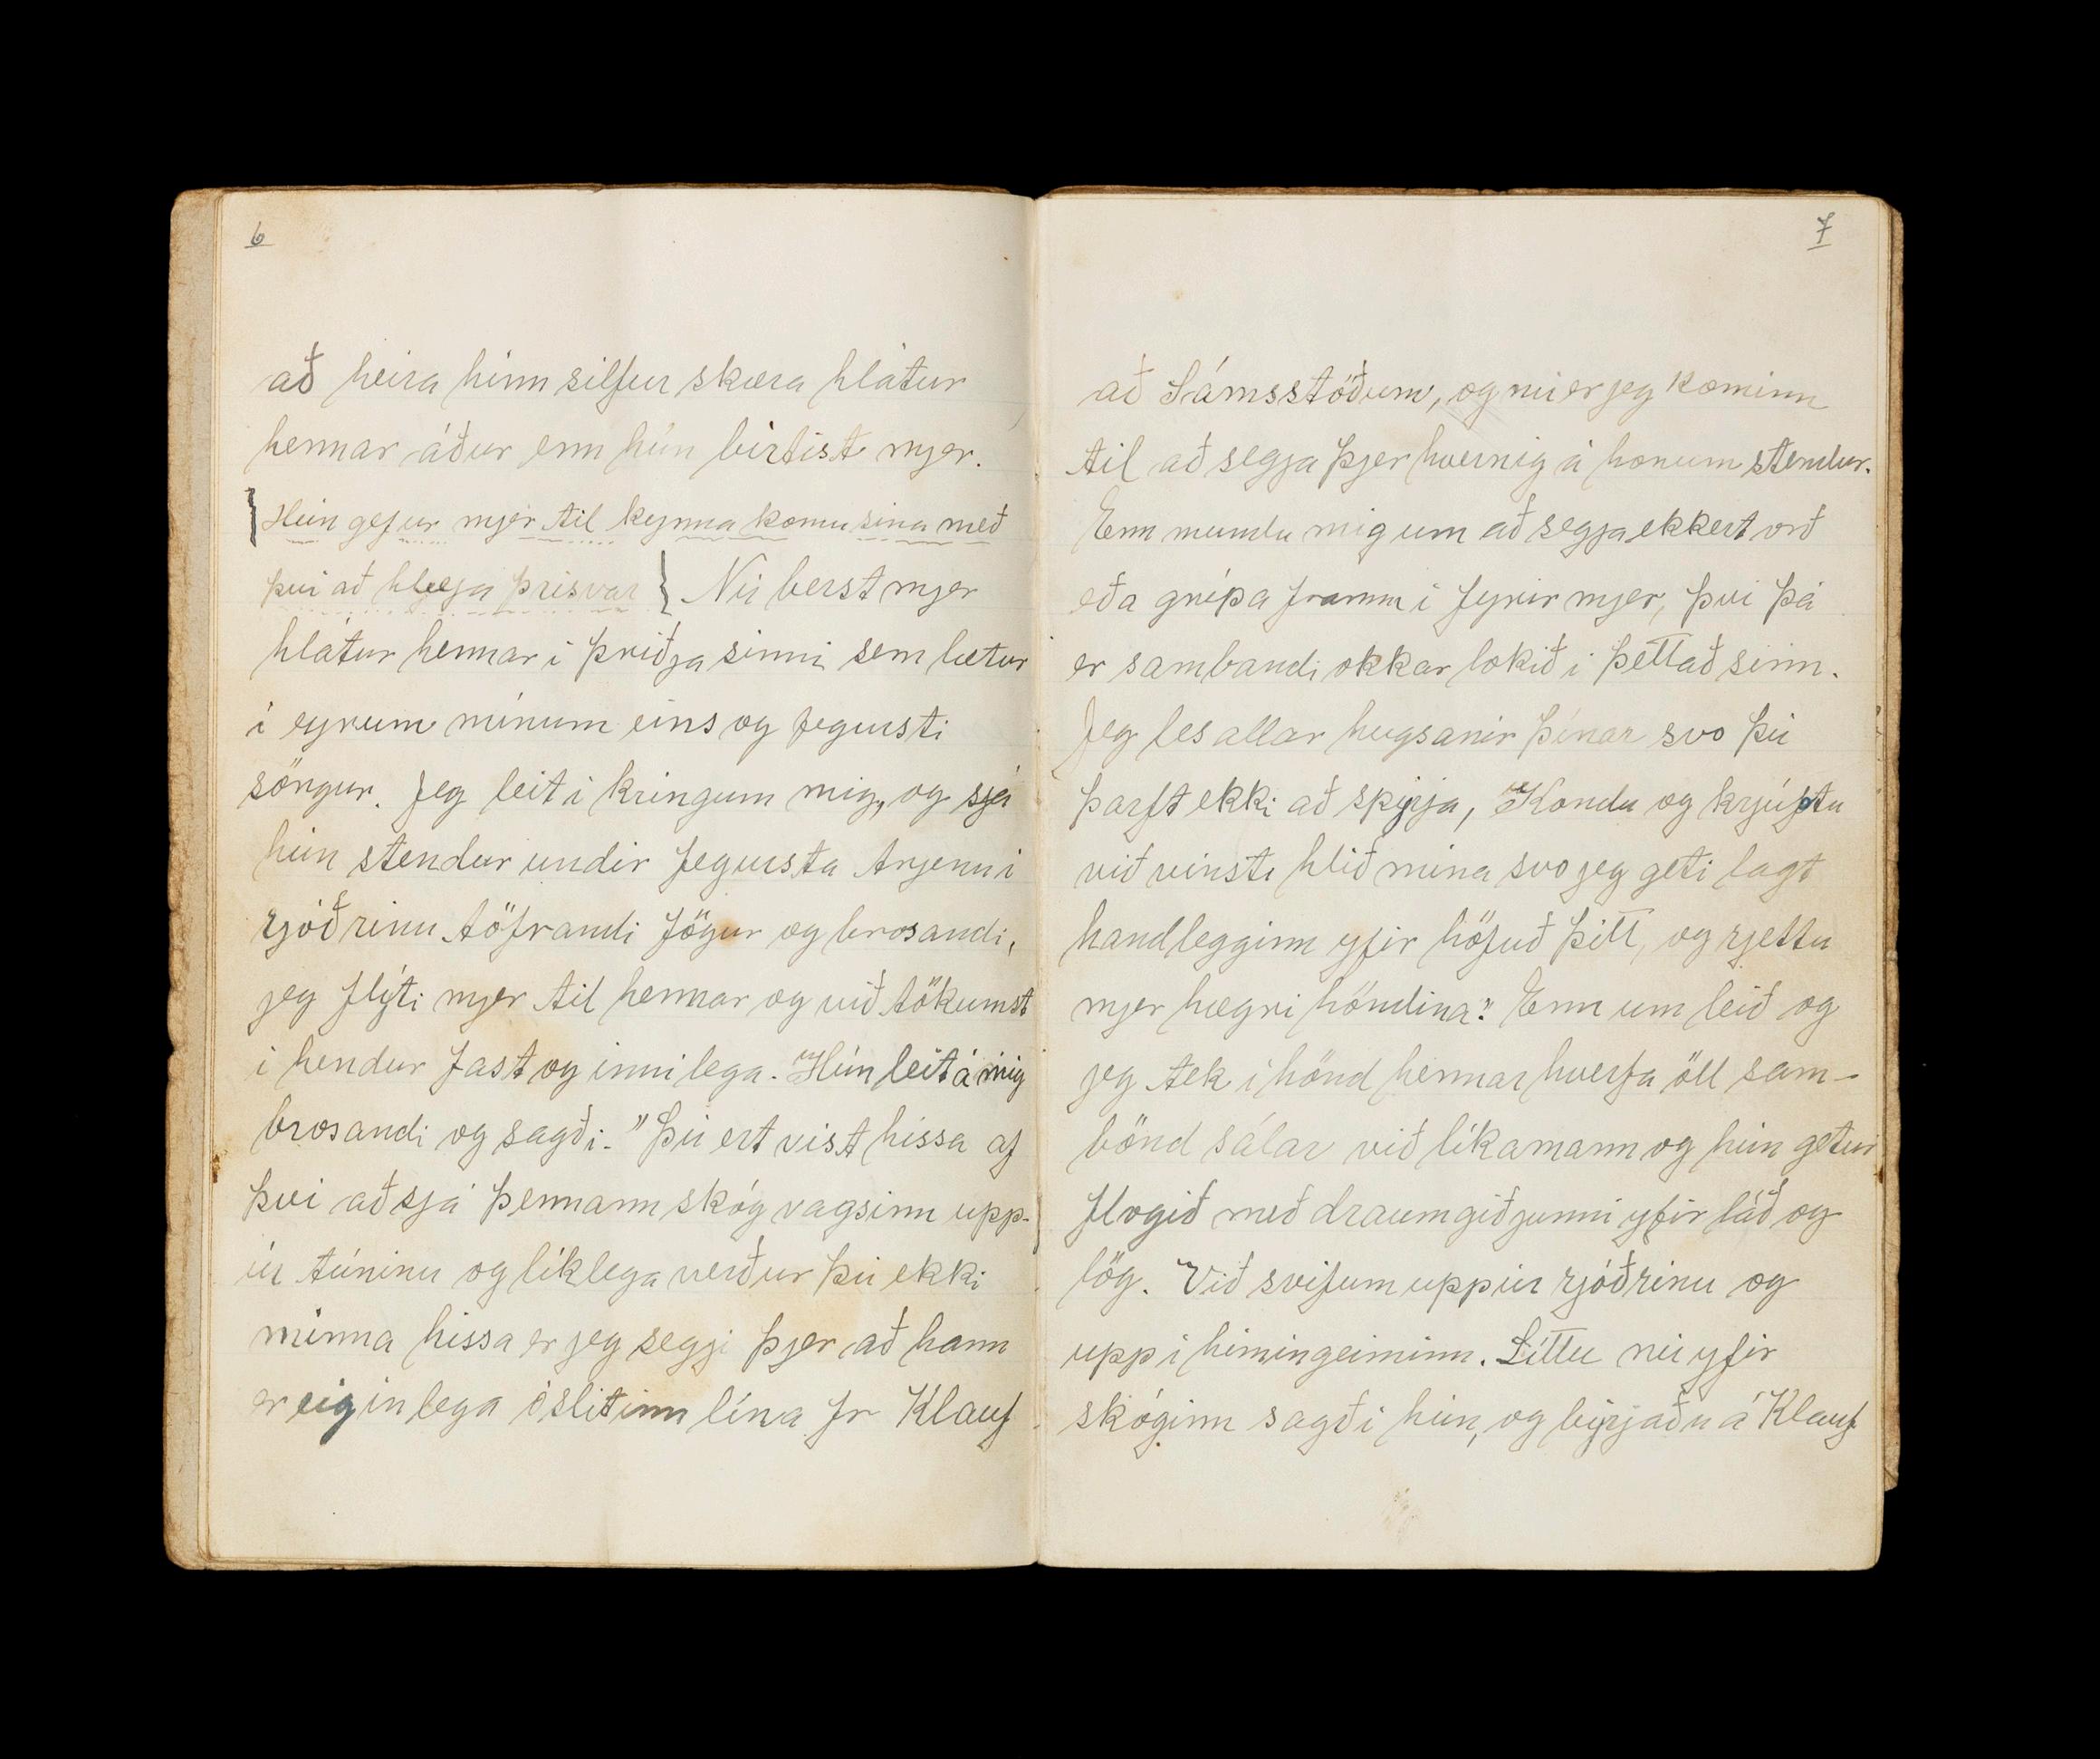 6
að heira hinn silfur skæra hlátur
hennar áður enn hún birtist mjer.
{Hún gefur mjer til kynna komu sina með
því að hlæja þrisvar} Nú berst mjer
hlátur hennar i þriðja sinni sem lætur
i eyrum minum eins og fegursti
söngur. Jeg leit i kringum mig, og sjá
hún stendur undir fegursta trjenu i
rjóðrinu töfrandi fögur og brosandi,
jeg flýti mjer til hennar og við tökumst
i hendur fast og innilega. Hún leit á mig
brosandi og sagði. "Þú ert vist hissa af
því að sjá þennann skóg vagsinn upp-
úr túninu og líklega verður þú ekki
minna hissa er jeg seggi þjer að hann
er eiginlega óslitinn lína fr Klauf
7
að Sámsstöðum, og nú er jeg kominn
til að segja þjer hvernig á honum stendur.
Enn mundu mig um að segja ekkert orð
eða grípa framm i fyrir mjer, þvi þá
er sambandi okkar lokið i þettað sinn.
Jeg les allar hugsanir þínar svo þú
þarft ekki að spyrja, "Kondu og krjúptu
við vinstr hlið mina svo jeg geti lagt
handlegginn yfir höfuð þitt, og rjettu
mjer hægri höndina." Enn um leið og
jeg tek i hönd hennar hverfa öll sam-
bönd sálar við líkamann og hún getur
flogið með draumgiðjunni yfir láð og
lög. Við svifum uppúr rjóðrinu og
upp i himingeiminn. Líttu nú yfir
skóginn sagði hún, og byrjaðu á Klauf